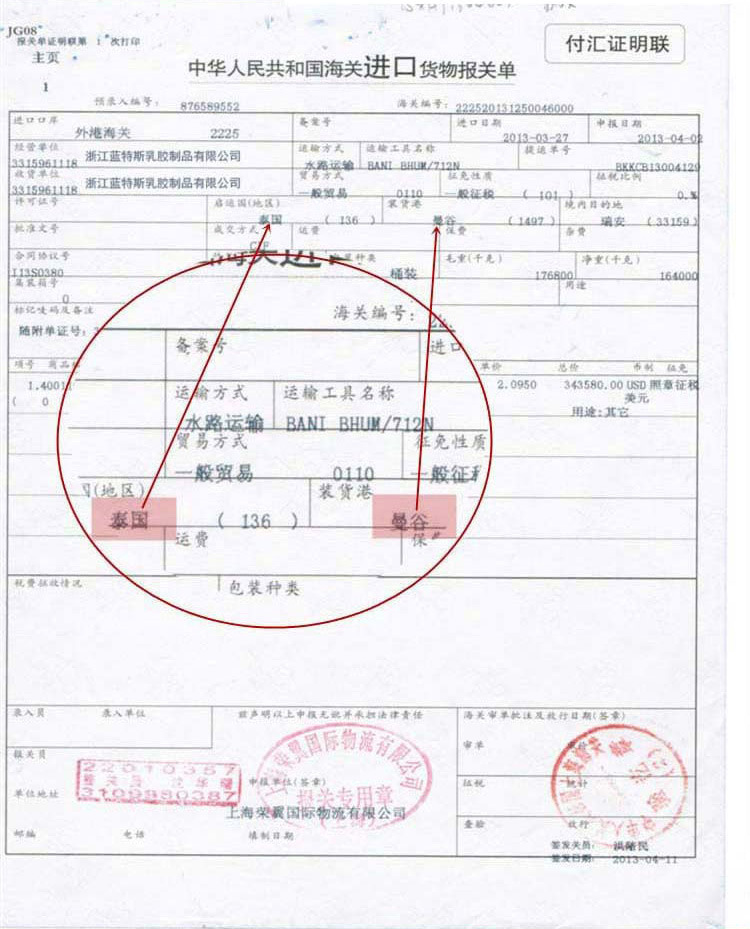 JG08
报关单证明联第 1 次打印
付汇证明联
主页
中华人民共和国海关进口货物报关单
1
预录入编号: 876589552 海关编号: 222520131250046000
进口口岸 备案号 进口日期 申报日期
外港海关 2225 2013-03-27 2013-04-02
经营单位 运输方式 运输工具名称 提运单号
3315961118 浙江蓝特斯乳胶制品有限公司 水路运输 BANI BHUM/712N BKKCB13004129
收货单位 贸易方式 征免性质 征税比例
3315961118 浙江蓝特斯乳胶制品有限公司 一般贸易 0110 一般征税 ( 101 ) 0.%
许可证号 启运国(地区) 装货港 境内目的地
泰国 ( 136 ) 曼谷 ( 1497 ) 瑞安 ( 33159 )
批准文号 成交方式 运费 保费 杂费
合同协议号 种类 毛重(千克) 净重(千克)
I13S0380 桶装 176800 164000
集装箱号 用途
0
标记唛码及备注
随附单证号:
海关编号:
备案号 进口
项号 商品 单价 总价 币制 征免
1.4001 2.0950 343580.00 USD 照章征税
( 0 美元
用途:其它
运输方式 运输工具名称
水路运输 BANI BHUM/712N
贸易方式 征免性质
一般贸易 0110 一般征
(地区) 装货港
泰国 ( 136 ) 曼谷
运费 保
包装种类
税费征收情况
录入员 录入单位 兹声明以上申报无讹并承担法律责任 海关审单批注及放行日期(签章)
审单
报关员
22010357
3109880387
申报单位(签章)
上海荣翼国际物流有限公司
报关专用章
征税 统计
单位地址
上海荣翼国际物流有限公司
查验 放行
邮编 电话 填制日期
签发关员:
签发日期: 2013-04-11